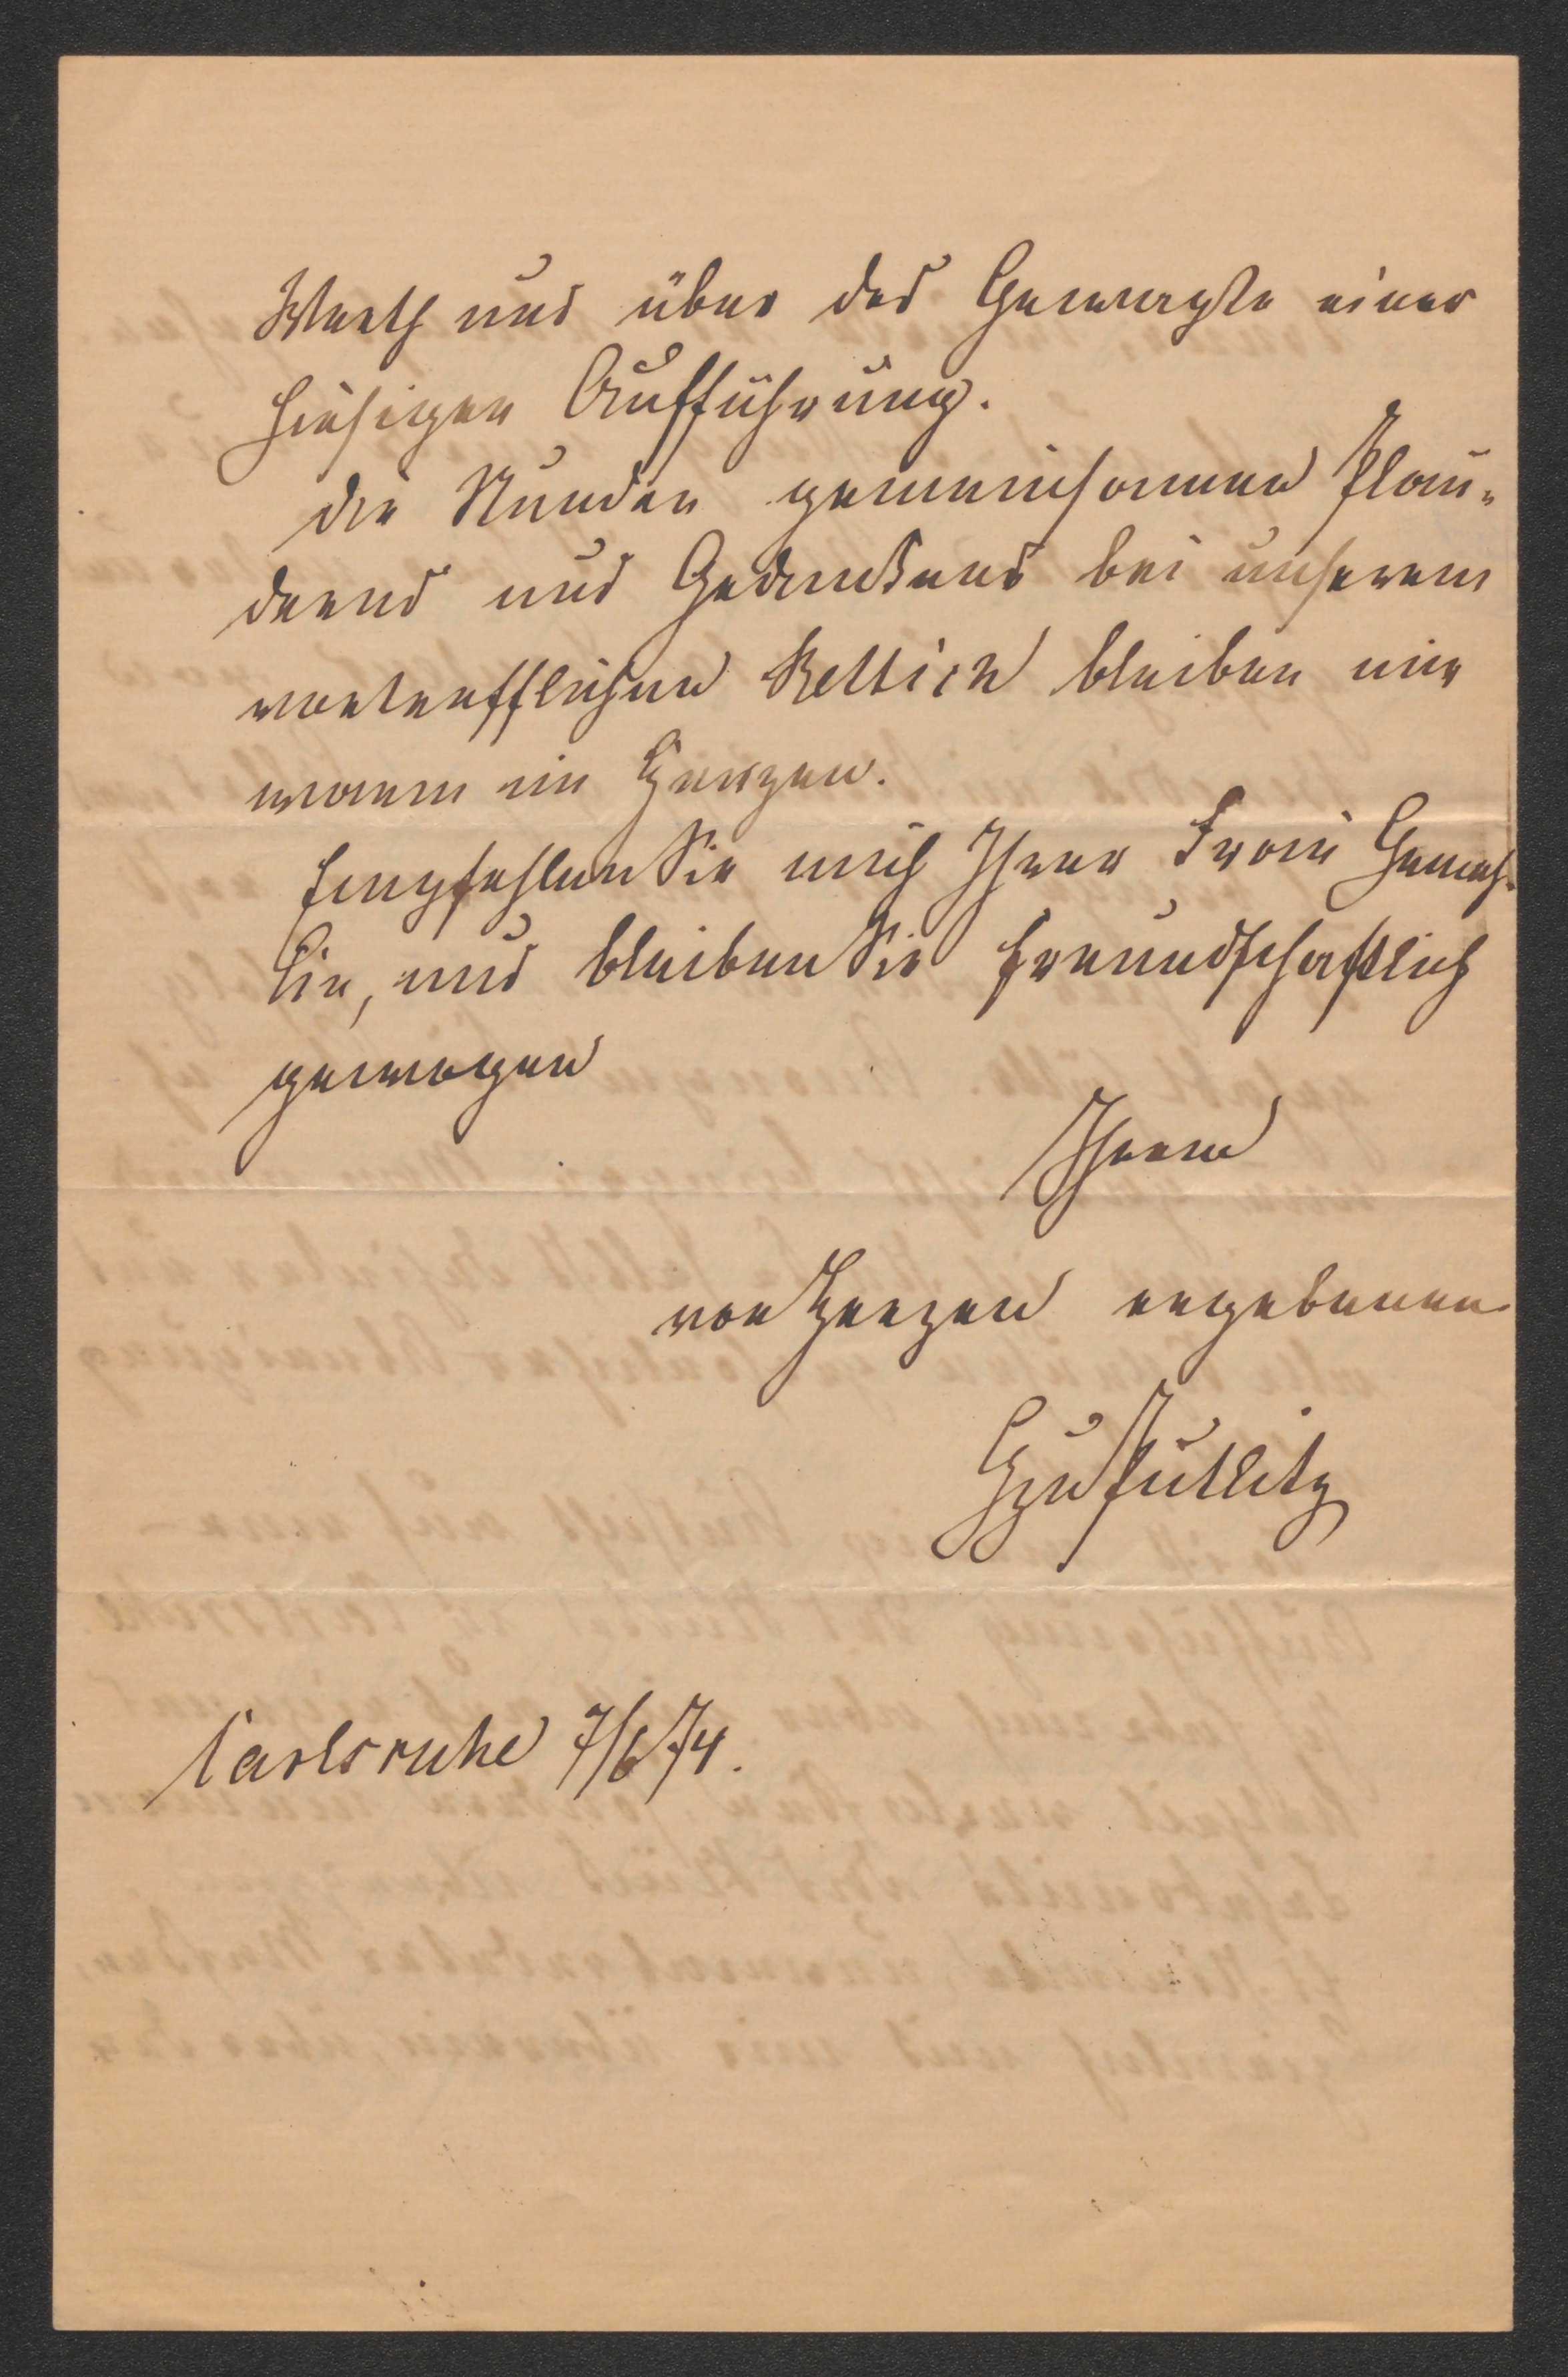 Werth und über das Gewagte einer
hiesigen Aufführung.
Die Stunden gemeinsamen Plau-
derns und Gedenkens bei unserem
vortrefflichen Rettich bleiben mir
warm im Herzen.
Empfehlen Sie mich Ihrer Frau Gemah-
lin, und bleiben Sie freundschaftlich
gewogen
Ihrem
von Herzen ergebenen
GzuPutlitz
Carlsruhe 7/6 74.